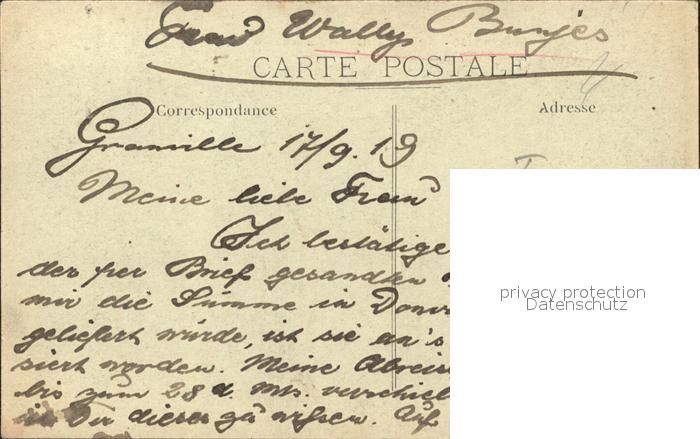 Frau Wally Bunjes
CARTE POSTALE
Correspondance
Adresse
Granville 17/9.19
Meine liebe Frau
Ich bestätige
der per Brief gesandten
mir die Summe in
geliefert würde, ist sie an's
siert worden. Meine Abreis
bis zum 28 d. Mts. verschie
Dir dieses zu wissen. Auf
privacy protection
Datenschutz